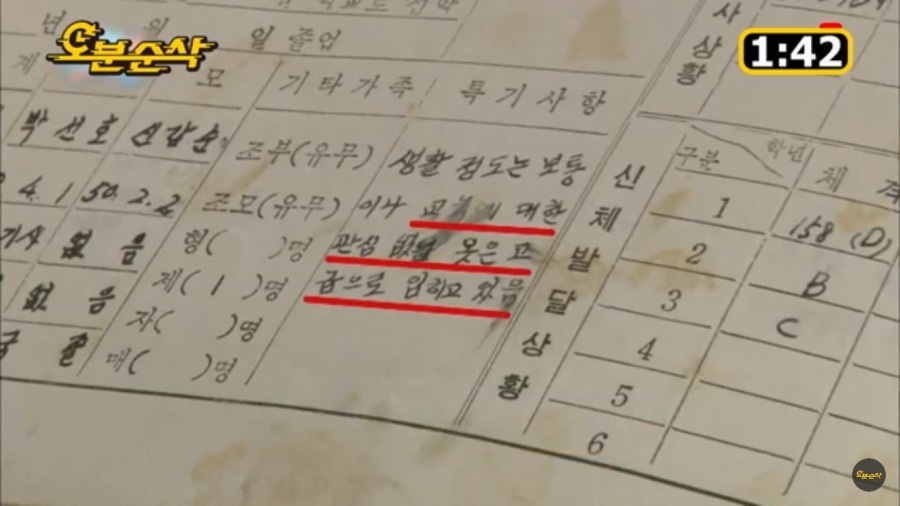 오분순삭
1:42
년
일 졸업
사 상황
모
기타가족
특기사항
박선호
신갑순
조부(유무)
생활 정도는 보통
4.1
50.2.2
조모(유무)
이나 대한
없음
형( )명
관심 없널 옷은 고
없음
제(1)명
급으로 입히고 있음
자( )명
매( )명
신체발달상황
구분
학년
체격
1
158 (D)
2
B
3
C
4
5
6
오분순삭